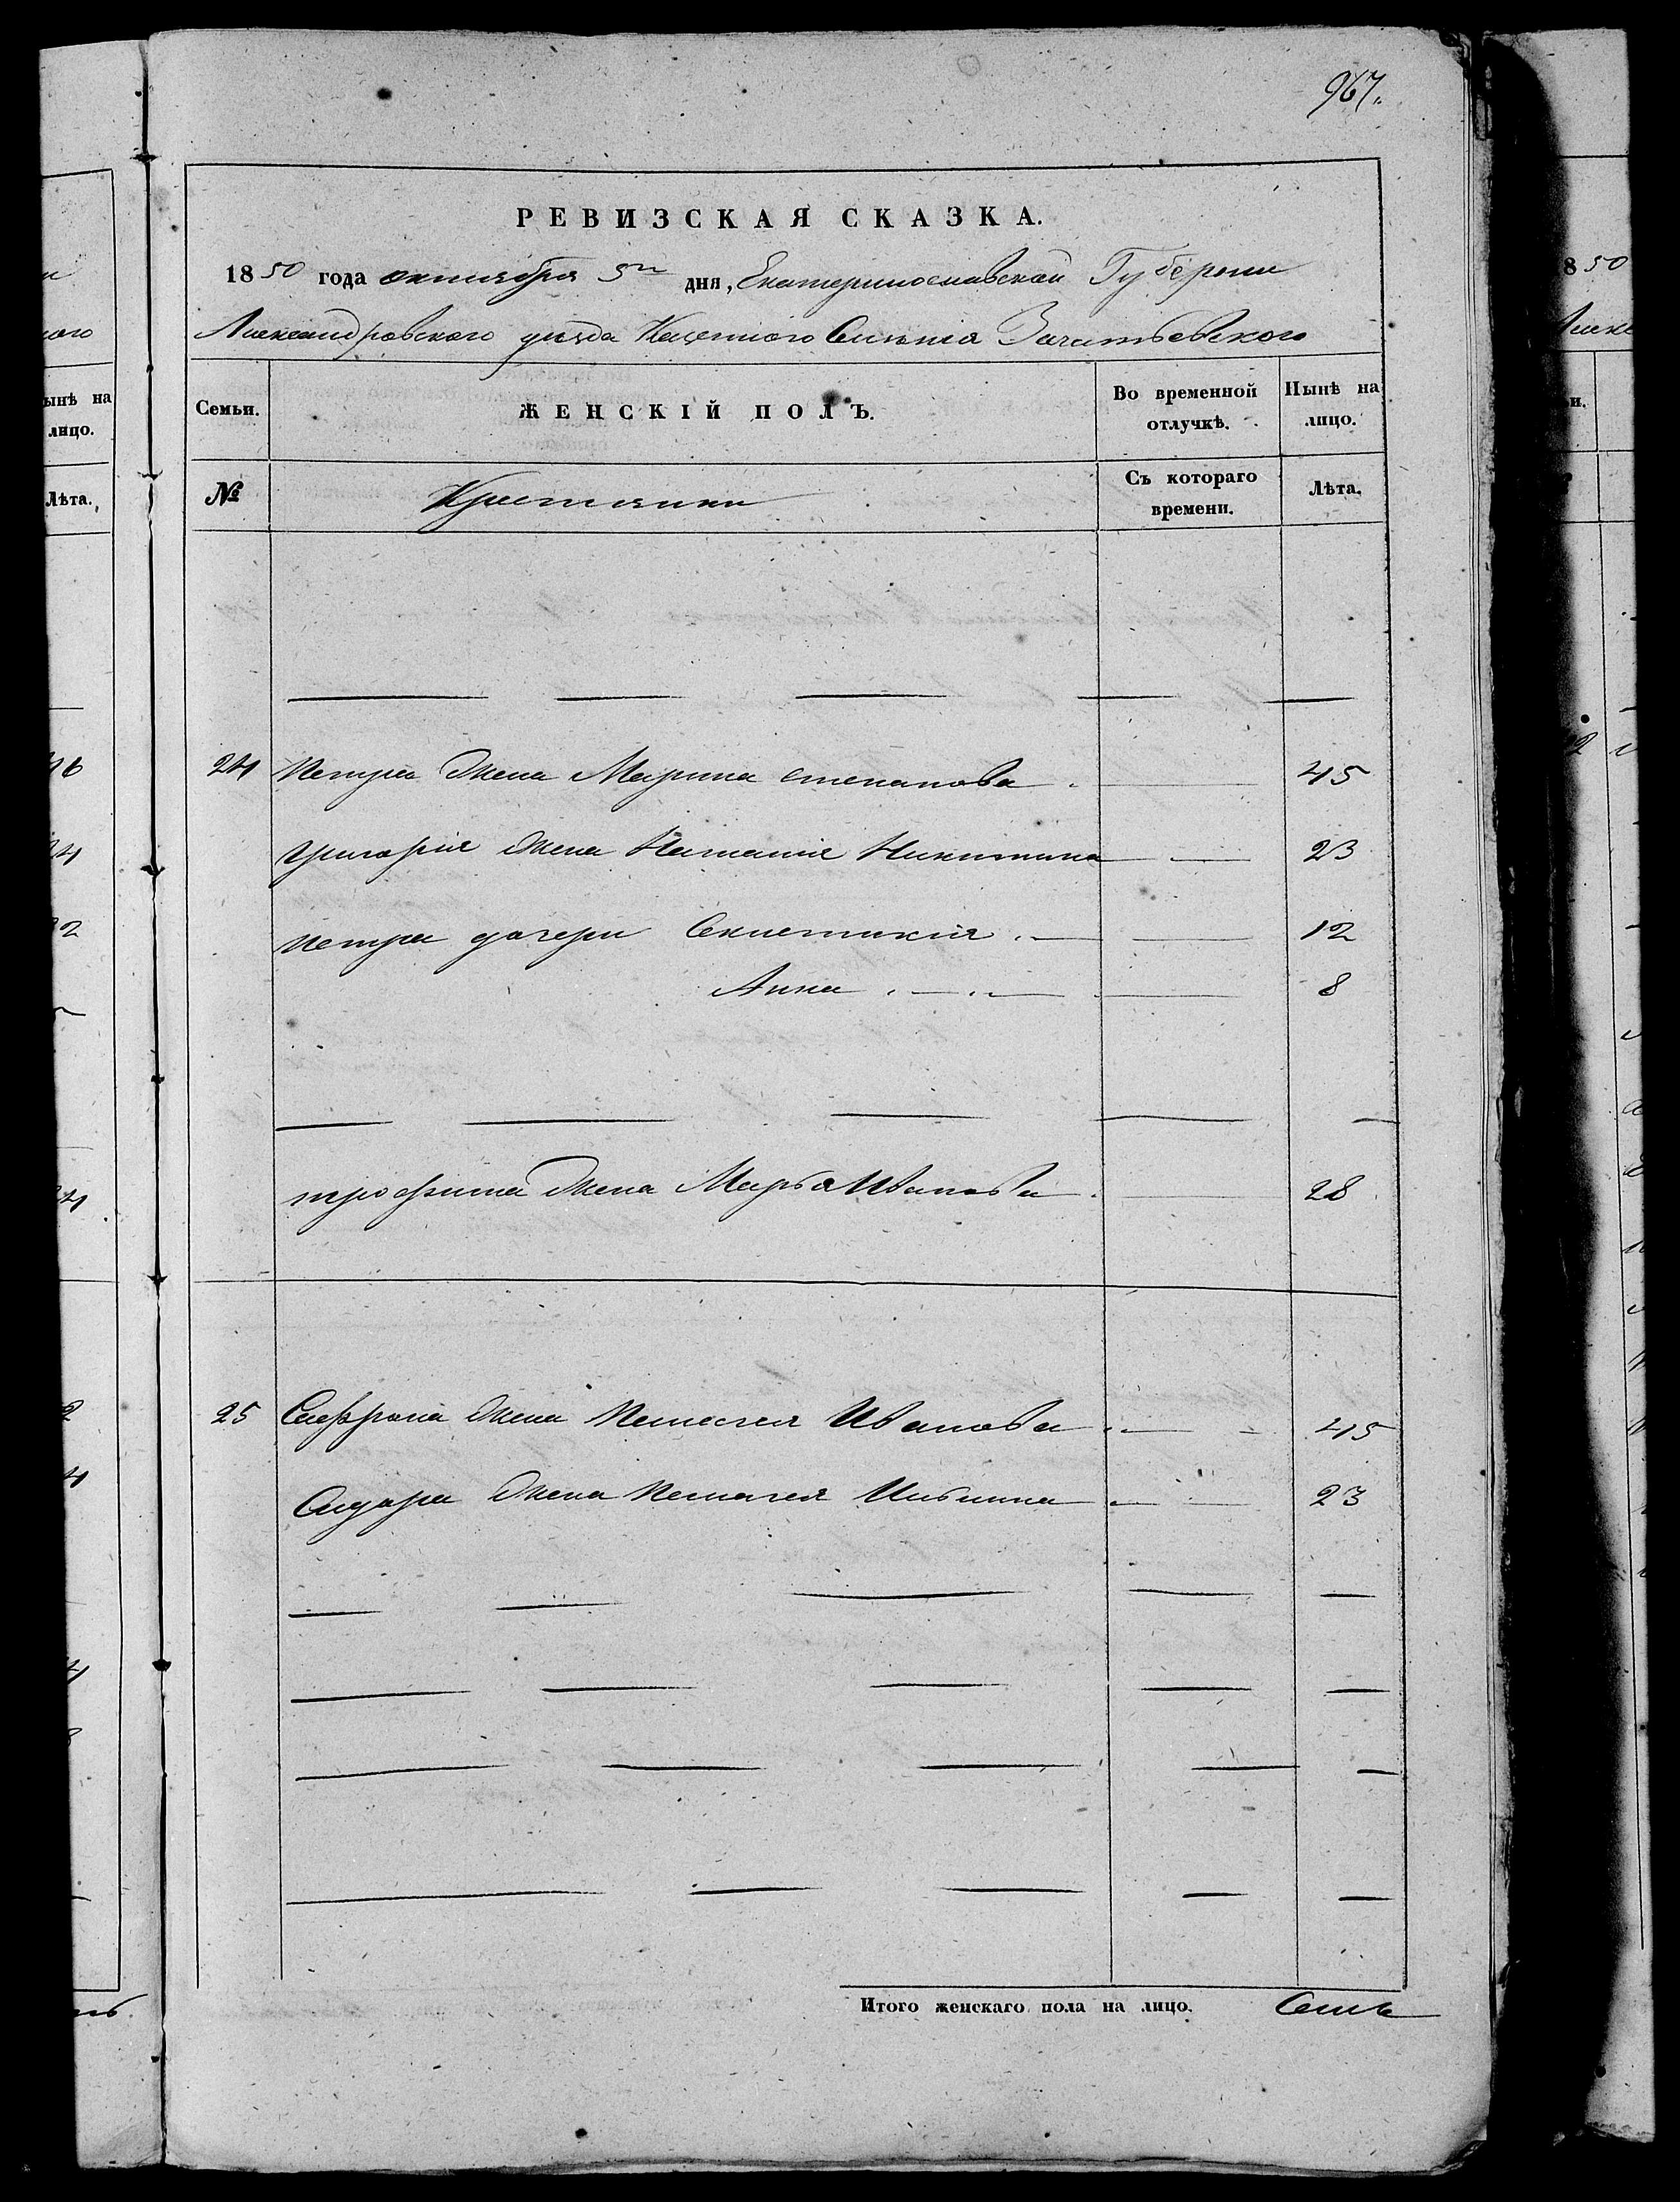 967.
РЕВИЗСКАЯ СКАЗКА.
1850 года октября 5го дня, Екатеринославской Губернии
Александровского уезда Казенного Селения Зачатьевского
Семьи. ЖЕНСКІЙ ПОЛЪ. Во временной отлучкѣ. Нынѣ на лицо.
№ Крестьянки Съ котораго времени. Лѣта.
24 Петра жена Марина степанова 45
Григория жена Наталия Никитина 23
Петра дочери Секлетикія 12
Анна 8
трофима жена Марья Иванова 28
25 Сафрона жена Пелагея Иванова 45
Сидора жена Пелагея Ильина 23
Итого женскаго пола на лицо. Семь